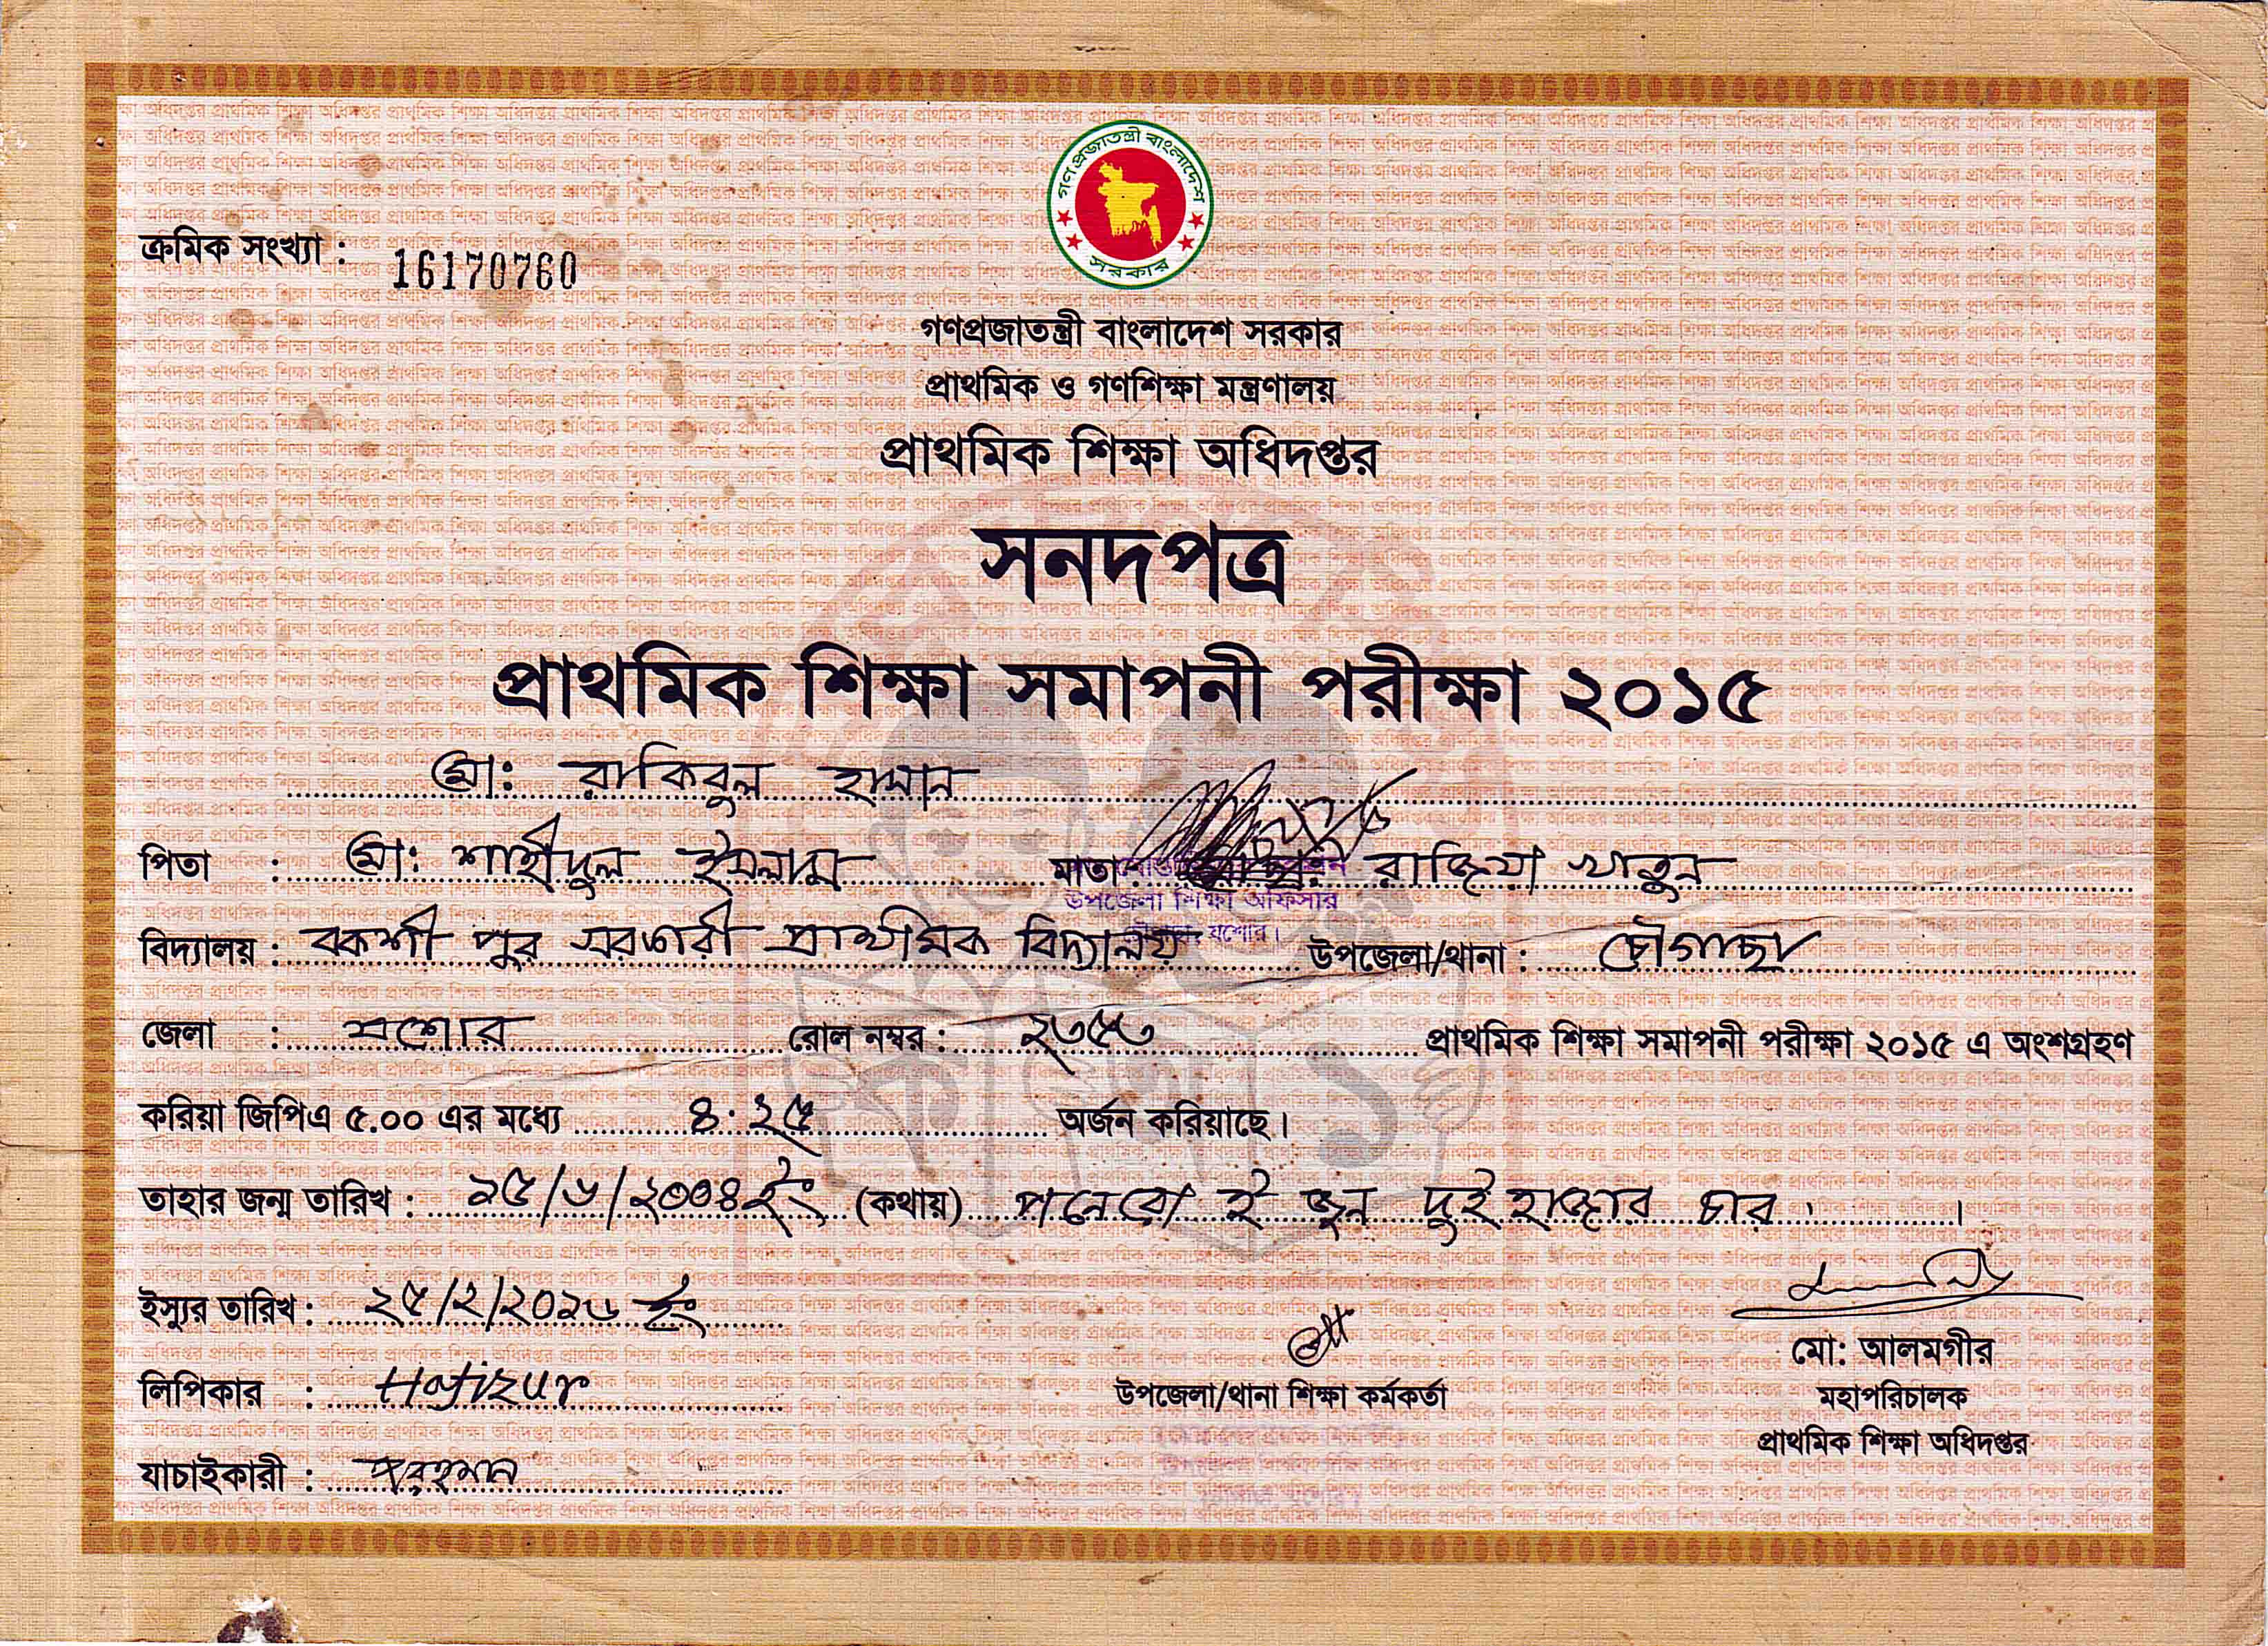 গণপ্রজাতন্ত্রী বাংলাদেশ
সরকার
ক্রমিক সংখ্যা : 16170760
গণপ্রজাতন্ত্রী বাংলাদেশ সরকার
প্রাথমিক ও গণশিক্ষা মন্ত্রণালয়
প্রাথমিক শিক্ষা অধিদপ্তর
সনদপত্র
প্রাথমিক শিক্ষা সমাপনী পরীক্ষা ২০১৫
মো: রাকিবুল হাসান
পিতা : মো: শাহীদুল ইসলাম মাতা : রাজিয়া খাতুন
উপজেলা শিক্ষা অফিসার
যশোর।
বিদ্যালয় : বকশী পুর সরকারী প্রাথমিক বিদ্যালয় উপজেলা/থানা : চৌগাছা
জেলা : যশোর রোল নম্বর : ২৩৫৩ প্রাথমিক শিক্ষা সমাপনী পরীক্ষা ২০১৫ এ অংশগ্রহণ
করিয়া জিপিএ ৫.০০ এর মধ্যে ৪.২৫ অর্জন করিয়াছে।
তাহার জন্ম তারিখ : ১৫/৬/২০০৪ ইং (কথায়) পনেরো ই জুন দুই হাজার চার ।
ইস্যুর তারিখ : ২৫/২/২০১৬ ইং
লিপিকার : Hafizur
যাচাইকারী :
উপজেলা/থানা শিক্ষা কর্মকর্তা
মো: আলমগীর
মহাপরিচালক
প্রাথমিক শিক্ষা অধিদপ্তর